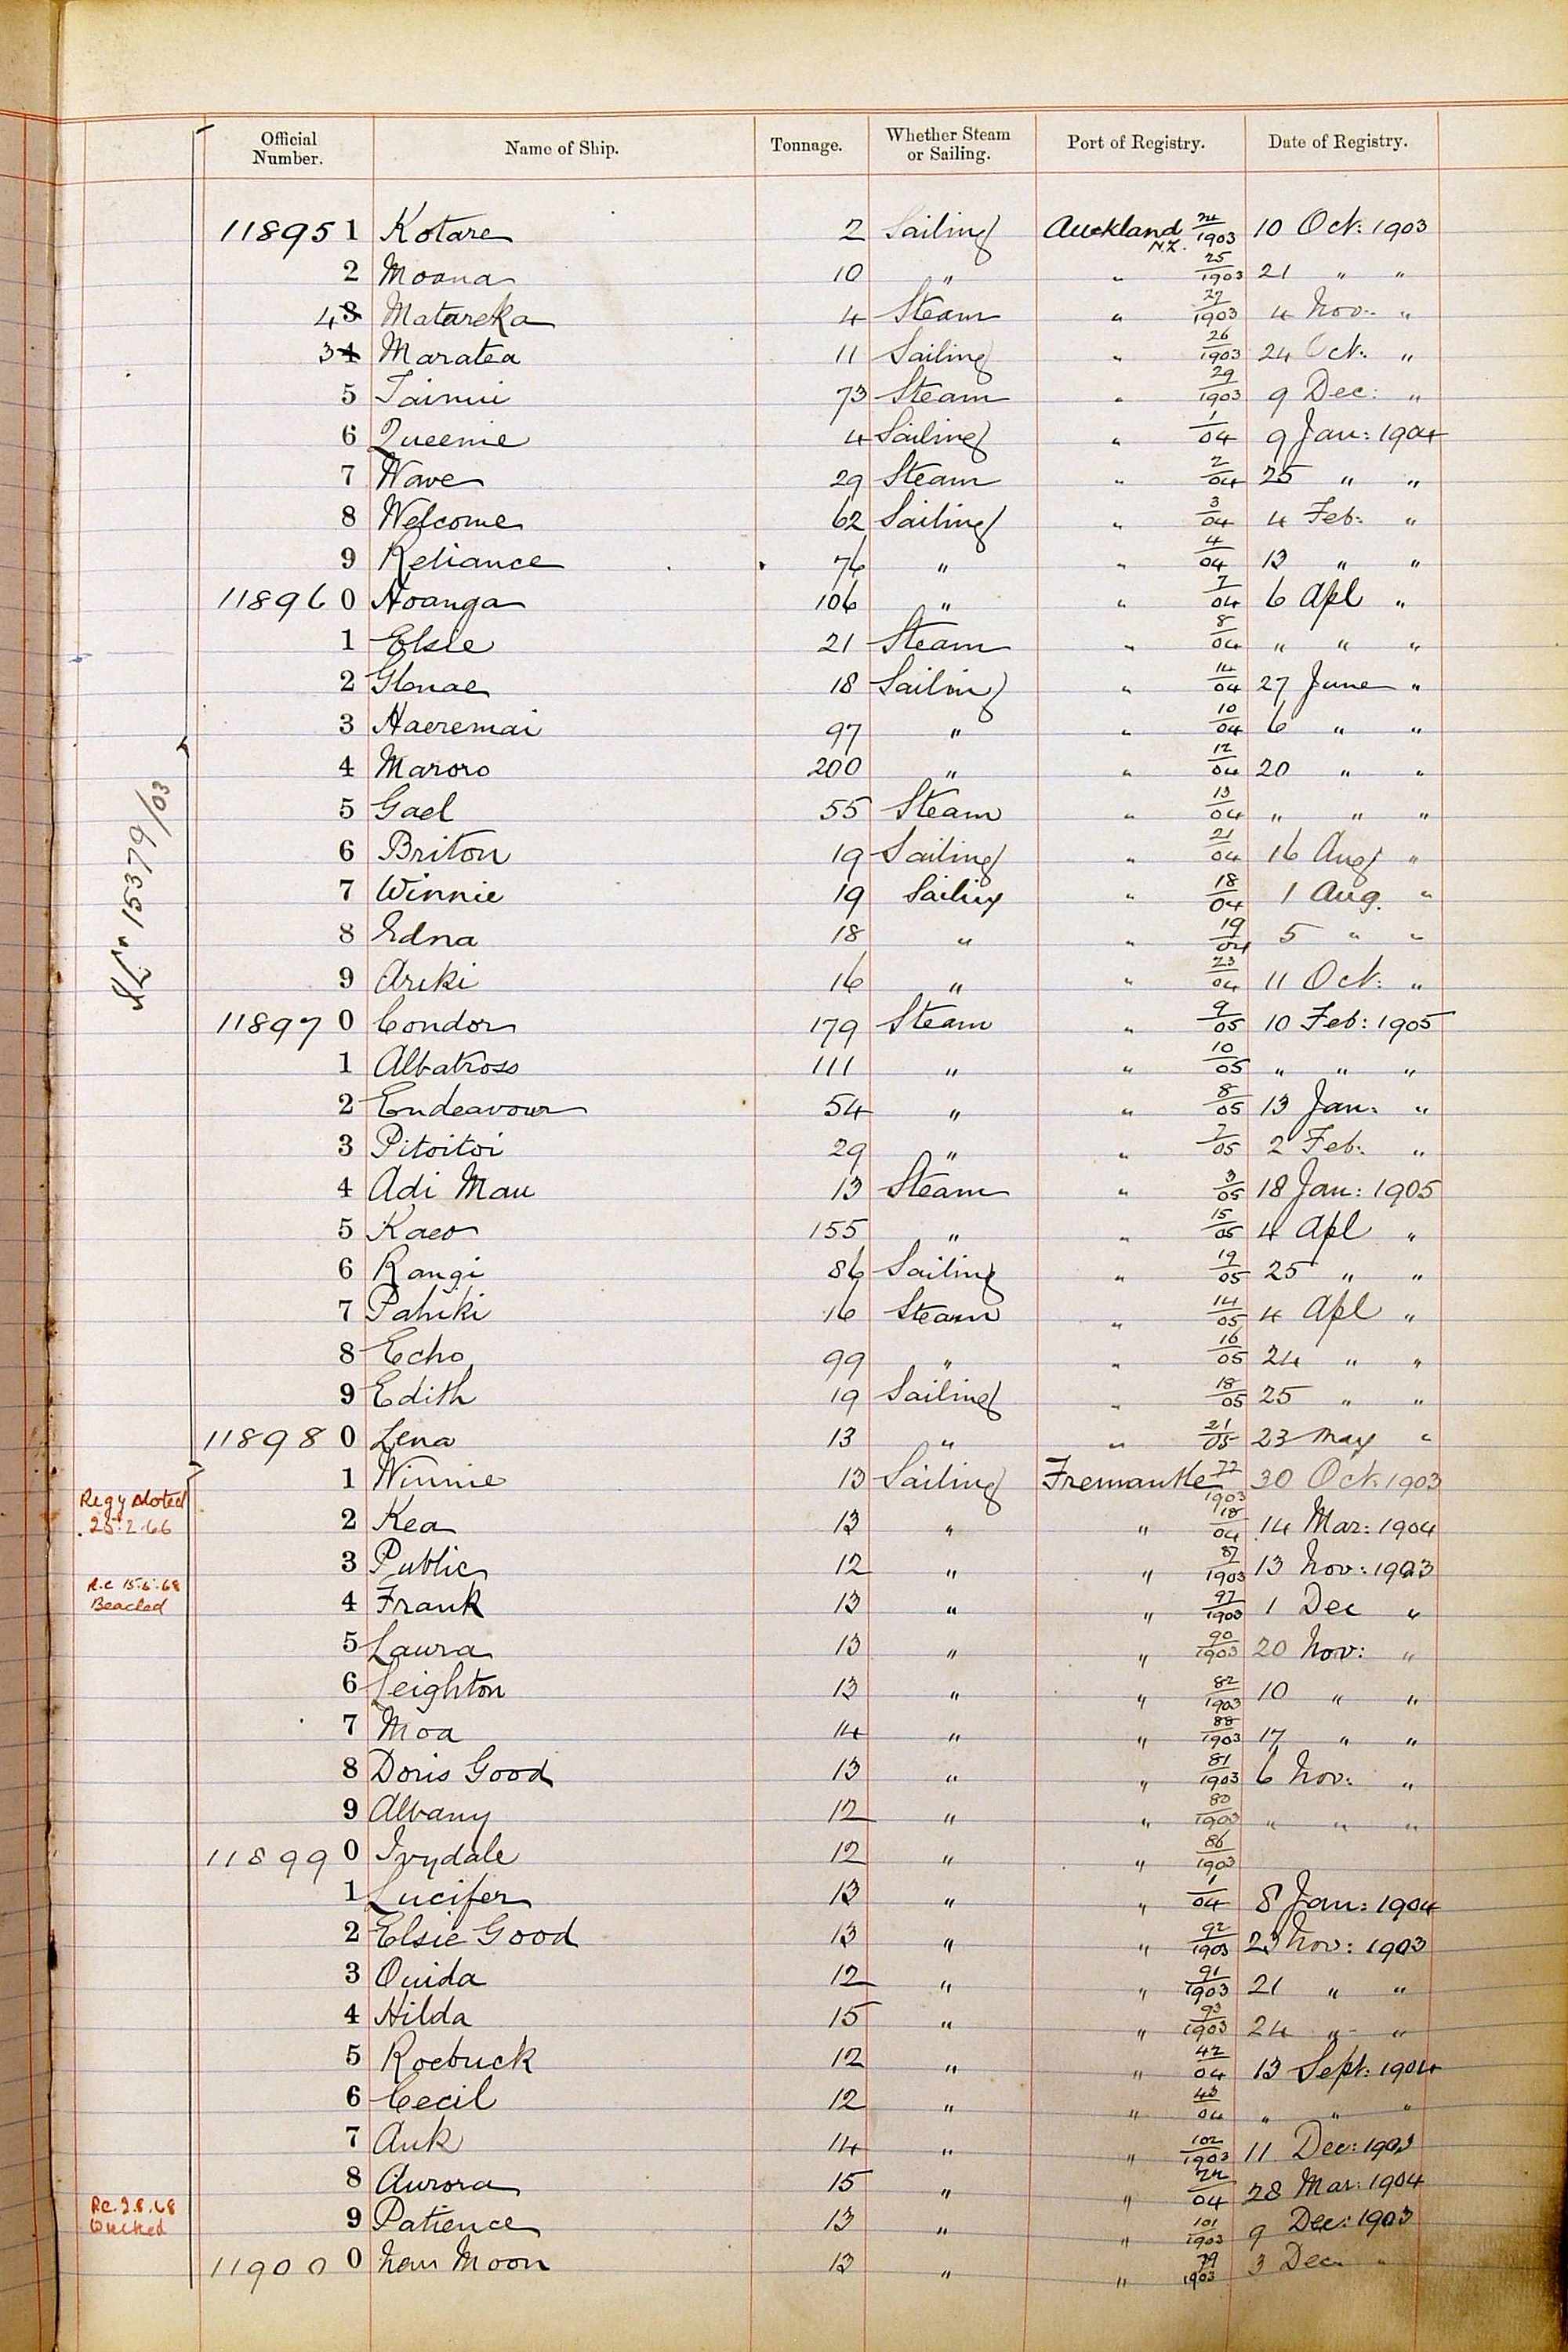 Official Number. Name of Ship. Tonnage. Whether Steam or Sailing. Port of Registry. Date of Registry.
118951 Kotare 2 Sailing Auckland N.Z. 24/1903 10 Oct: 1903
2 Moana 10 " " 25/1903 21 " "
4 3 Matareka 4 Steam " 27/1903 4 Nov: "
3 4 Maratea 11 Sailing " 26/1903 24 Oct: "
5 Tainui 73 Steam " 29/1903 9 Dec: "
6 Queenie 4 Sailing " 1/04 9 Jan: 1904
7 Wave 29 Steam " 2/04 25 " "
8 Welcome 62 Sailing " 3/04 4 Feb: "
9 Reliance 76 " " 4/04 13 " "
118960 Hoanga 106 " " 7/04 6 Apl "
1 Elsie 21 Steam " 8/04 " " "
2 18 Sailing " 14/04 27 June "
3 Haeremai 97 " " 10/04 6 " "
4 Maroro 200 " " 12/04 20 " "
5 Gael 55 Steam " 13/04 " " "
6 Briton 19 Sailing " 21/04 16 Aug "
7 Winnie 19 Sailing " 18/04 1 Aug. "
8 Edna 18 " " 19/04 5 " "
9 Ariki 16 " " 23/04 11 Oct: "
118970 Condor 179 Steam " 9/05 10 Feb: 1905
1 Albatross 111 " " 10/05 " " "
2 Endeavour 54 " " 8/05 13 Jan: "
3 Pitoitoi 29 " " 7/05 2 Feb: "
4 Adi Mau 13 Steam " 3/05 18 Jan: 1905
5 Kaeo 155 " " 15/05 4 Apl "
6 Rangi 86 Sailing " 19/05 25 " "
7 Pahiki 16 Steam " 14/05 4 Apl "
8 Echo 99 " " 16/05 24 " "
9 Edith 19 Sailing " 18/05 25 " "
118980 Lena 13 " " 21/05 23 May "
1 Winnie 13 Sailing Fremantle 77/1903 30 Oct. 1903
2 Kea 13 " " 18/04 14 Mar: 1904
3 Public 12 " " 87/1903 13 Nov: 1903
4 Frank 13 " " 97/1903 1 Dec "
5 Laura 13 " " 90/1903 20 Nov: "
6 Leighton 13 " " 82/1903 10 " "
7 Moa 14 " " 88/1903 17 " "
8 Doris Good 13 " " 81/1903 6 Nov: "
9 Albany 12 " " 80/1903 " " "
118990 Ivydale 12 " " 86/1903
1 Lucifer 13 " " 1/04 8 Jan: 1904
2 Elsie Good 13 " " 92/1903 23 Nov: 1903
3 Ouida 12 " " 91/1903 21 " "
4 Hilda 15 " " 93/1903 24 " "
5 Roebuck 12 " " 42/04 13 Sept: 1904
6 Cecil 12 " " 43/04 " " "
7 Auk 14 " " 102/1903 11 Dec: 1903
8 Aurora 15 " " 24/04 28 Mar: 1904
9 Patience 13 " " 101/1903 9 Dec: 1903
119000 New Moon 13 " " 79/1903 3 Dec. "
15379/03
Regy
25.2.66
R.C 15.6.68
Beached
R.C. 2.8.68